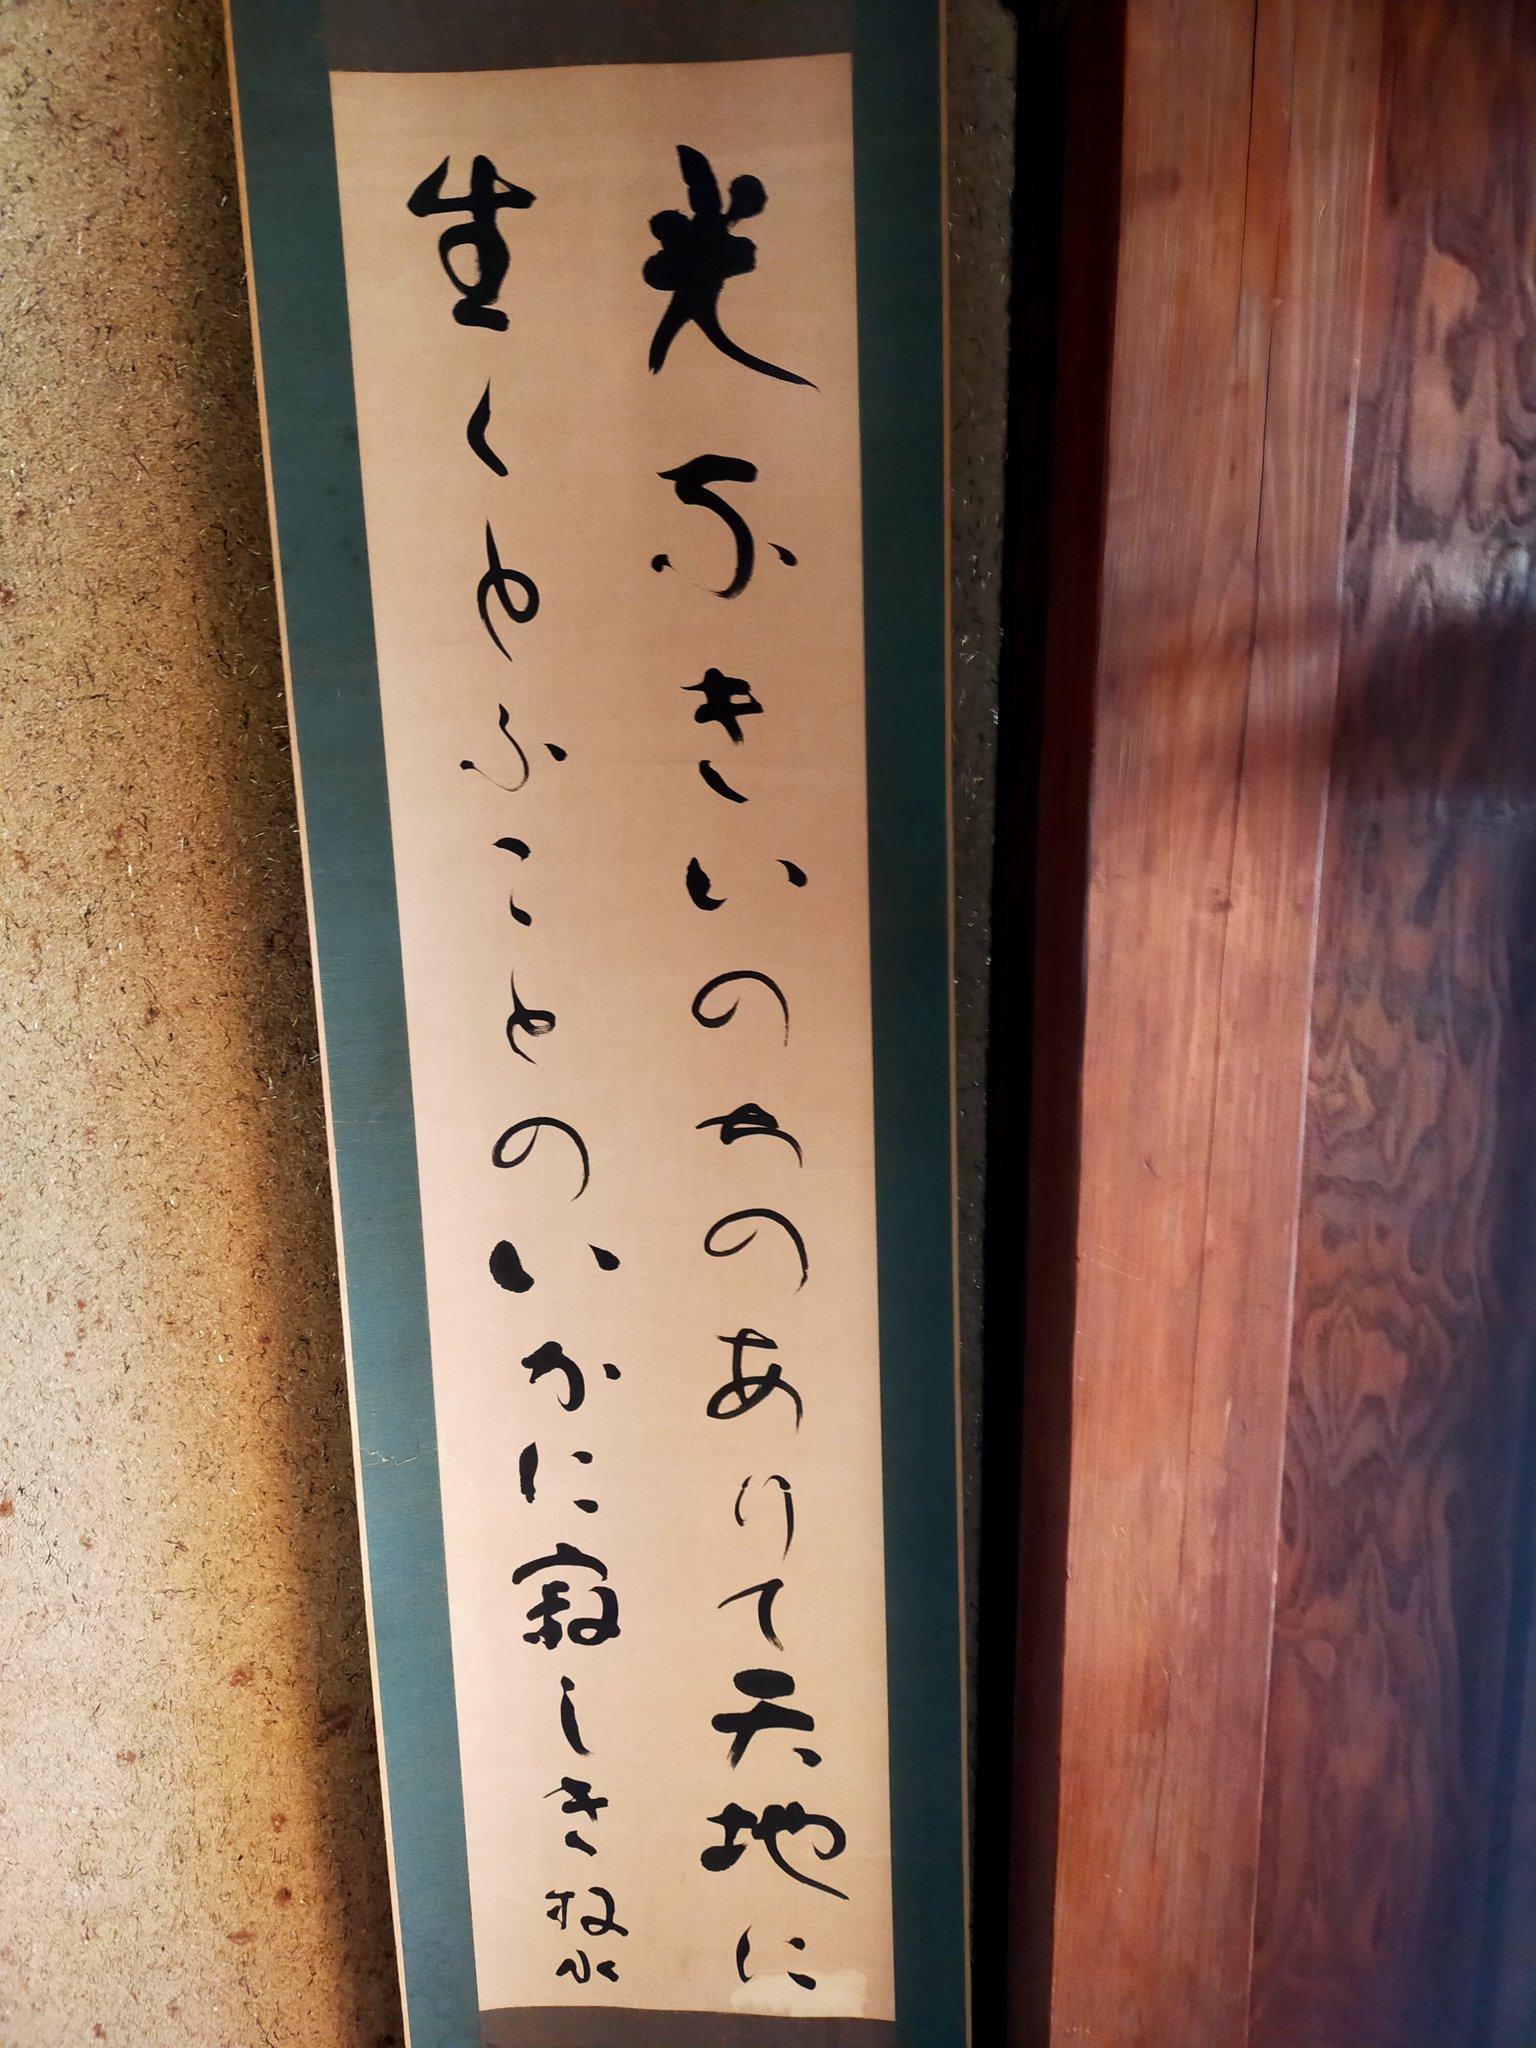 光なきいのちのありて天地に
生くとふことのいかに寂しき 牧水